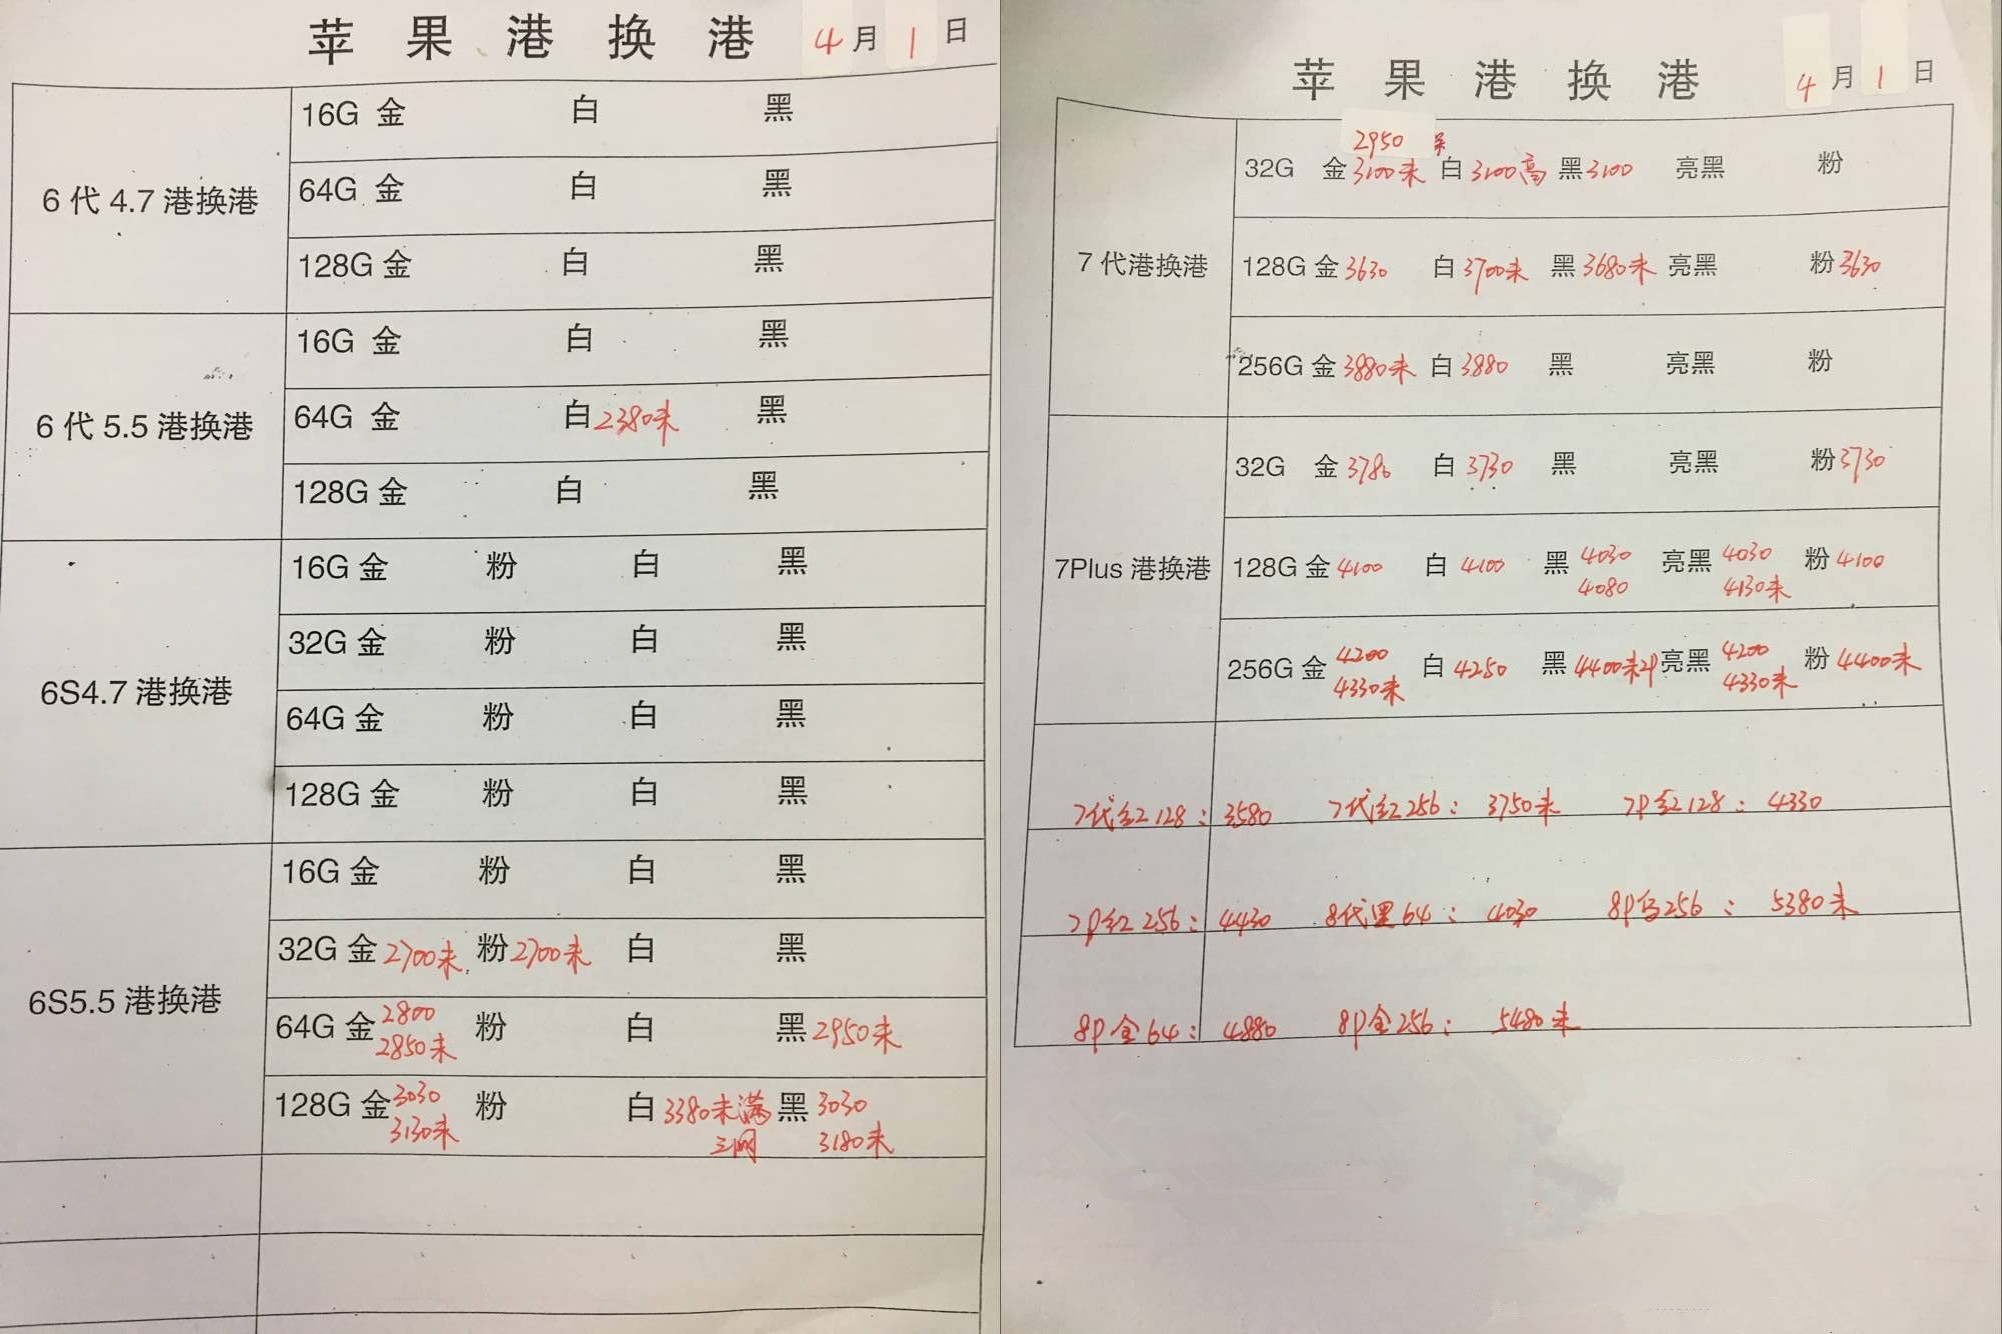 苹果港换港 4月1日
16G 金 白 黑
64G 金 白 黑
6代4.7港换港
128G 金 白 黑
16G 金 白 黑
64G 金 白2380未 黑
6代5.5港换港
128G 金 白 黑
16G 金 粉 白 黑
32G 金 粉 白 黑
6S4.7港换港
64G 金 粉 白 黑
128G 金 粉 白 黑
16G 金 粉 白 黑
32G 金2700未 粉2700未 白 黑
6S5.5港换港
64G 金2800 粉 白 黑2950未
2850未
128G 金3030 粉 白3380未满 黑3030
3130未 三网 3180未
苹果港换港 4月1日
2950
32G 金3100未 白3100高 黑3100 亮黑 粉
7代港换港 128G 金3630 白3700未 黑3680未 亮黑 粉3630
256G 金3880未 白3880 黑 亮黑 粉
32G 金3780 白3730 黑 亮黑 粉3730
7Plus港换港 128G 金4100 白4100 黑4030 亮黑4030 粉4100
4080 4130未
256G 金4200 白4250 黑4400未 亮黑4200 粉4400未
4330未 4330未
7代红128：3580 7代红256：3750未 7P红128：4330
7P红256：4430 8代黑64：4030 8P白256：5380未
8P金64：4880 8P金256：5480未